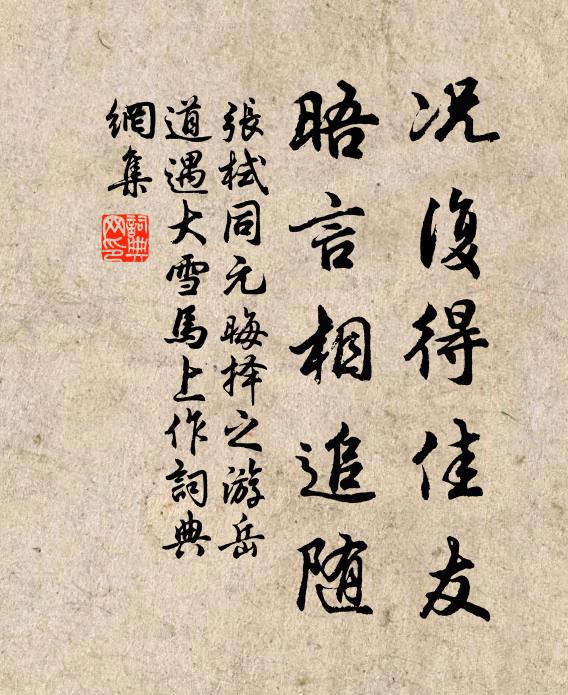 况復得佳友
晤言相追随
張栻同元晦择之游岳
道遇大雪馬上作詞典
網集
詞典網印